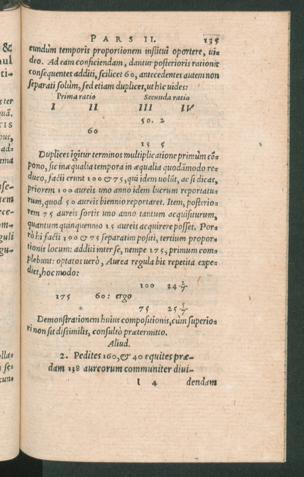 PARS II. 135
eundum temporis proportionem institui oportere, ui-
deo. Ad eam conficiendam, dantur posterioris rationis
consequentet additi, scilicet 60, antecedentes autem non
separati solùm, sed etiam duplicet, ut hic uides:
Prima ratio Secunda ratio
I II III IV
50. 2
60
15 5
Duplices igitur terminos multiplicatione primùm cõ-
pono, sic inæqualia tempora in æqualia quodãmodo re-
duco, facit enim 100 & 75, qui idem uolũt, ac si dicat,
priorem 100 aureis uno anno idem lucrum reportatu-
rum, quod 50 aureis biennio reportaret. Item, posterio-
rem 75 aureis sortis uno anno tantum acquisiturum,
quantum quinquennio 15 aureis acquirere posset. Por-
rò hi facti 100 & 75 separatim positi, tertium propor-
tionis locum: additi inter se, nempe 175, primum com-
plebunt: optatos uerò, Aurea regula bis repetita expe-
diet, hoc modo:
100 34 2/7
175 60: ergo
75 25 5/7
Demonstrationem huius compositionis, cùm superio-
ri non sit dissimilis, consultò prætermitto.
Aliud.
2. Pedites 160, & 40 equites præ-
dam 138 aureorum communiter diui-
I 4 dendam